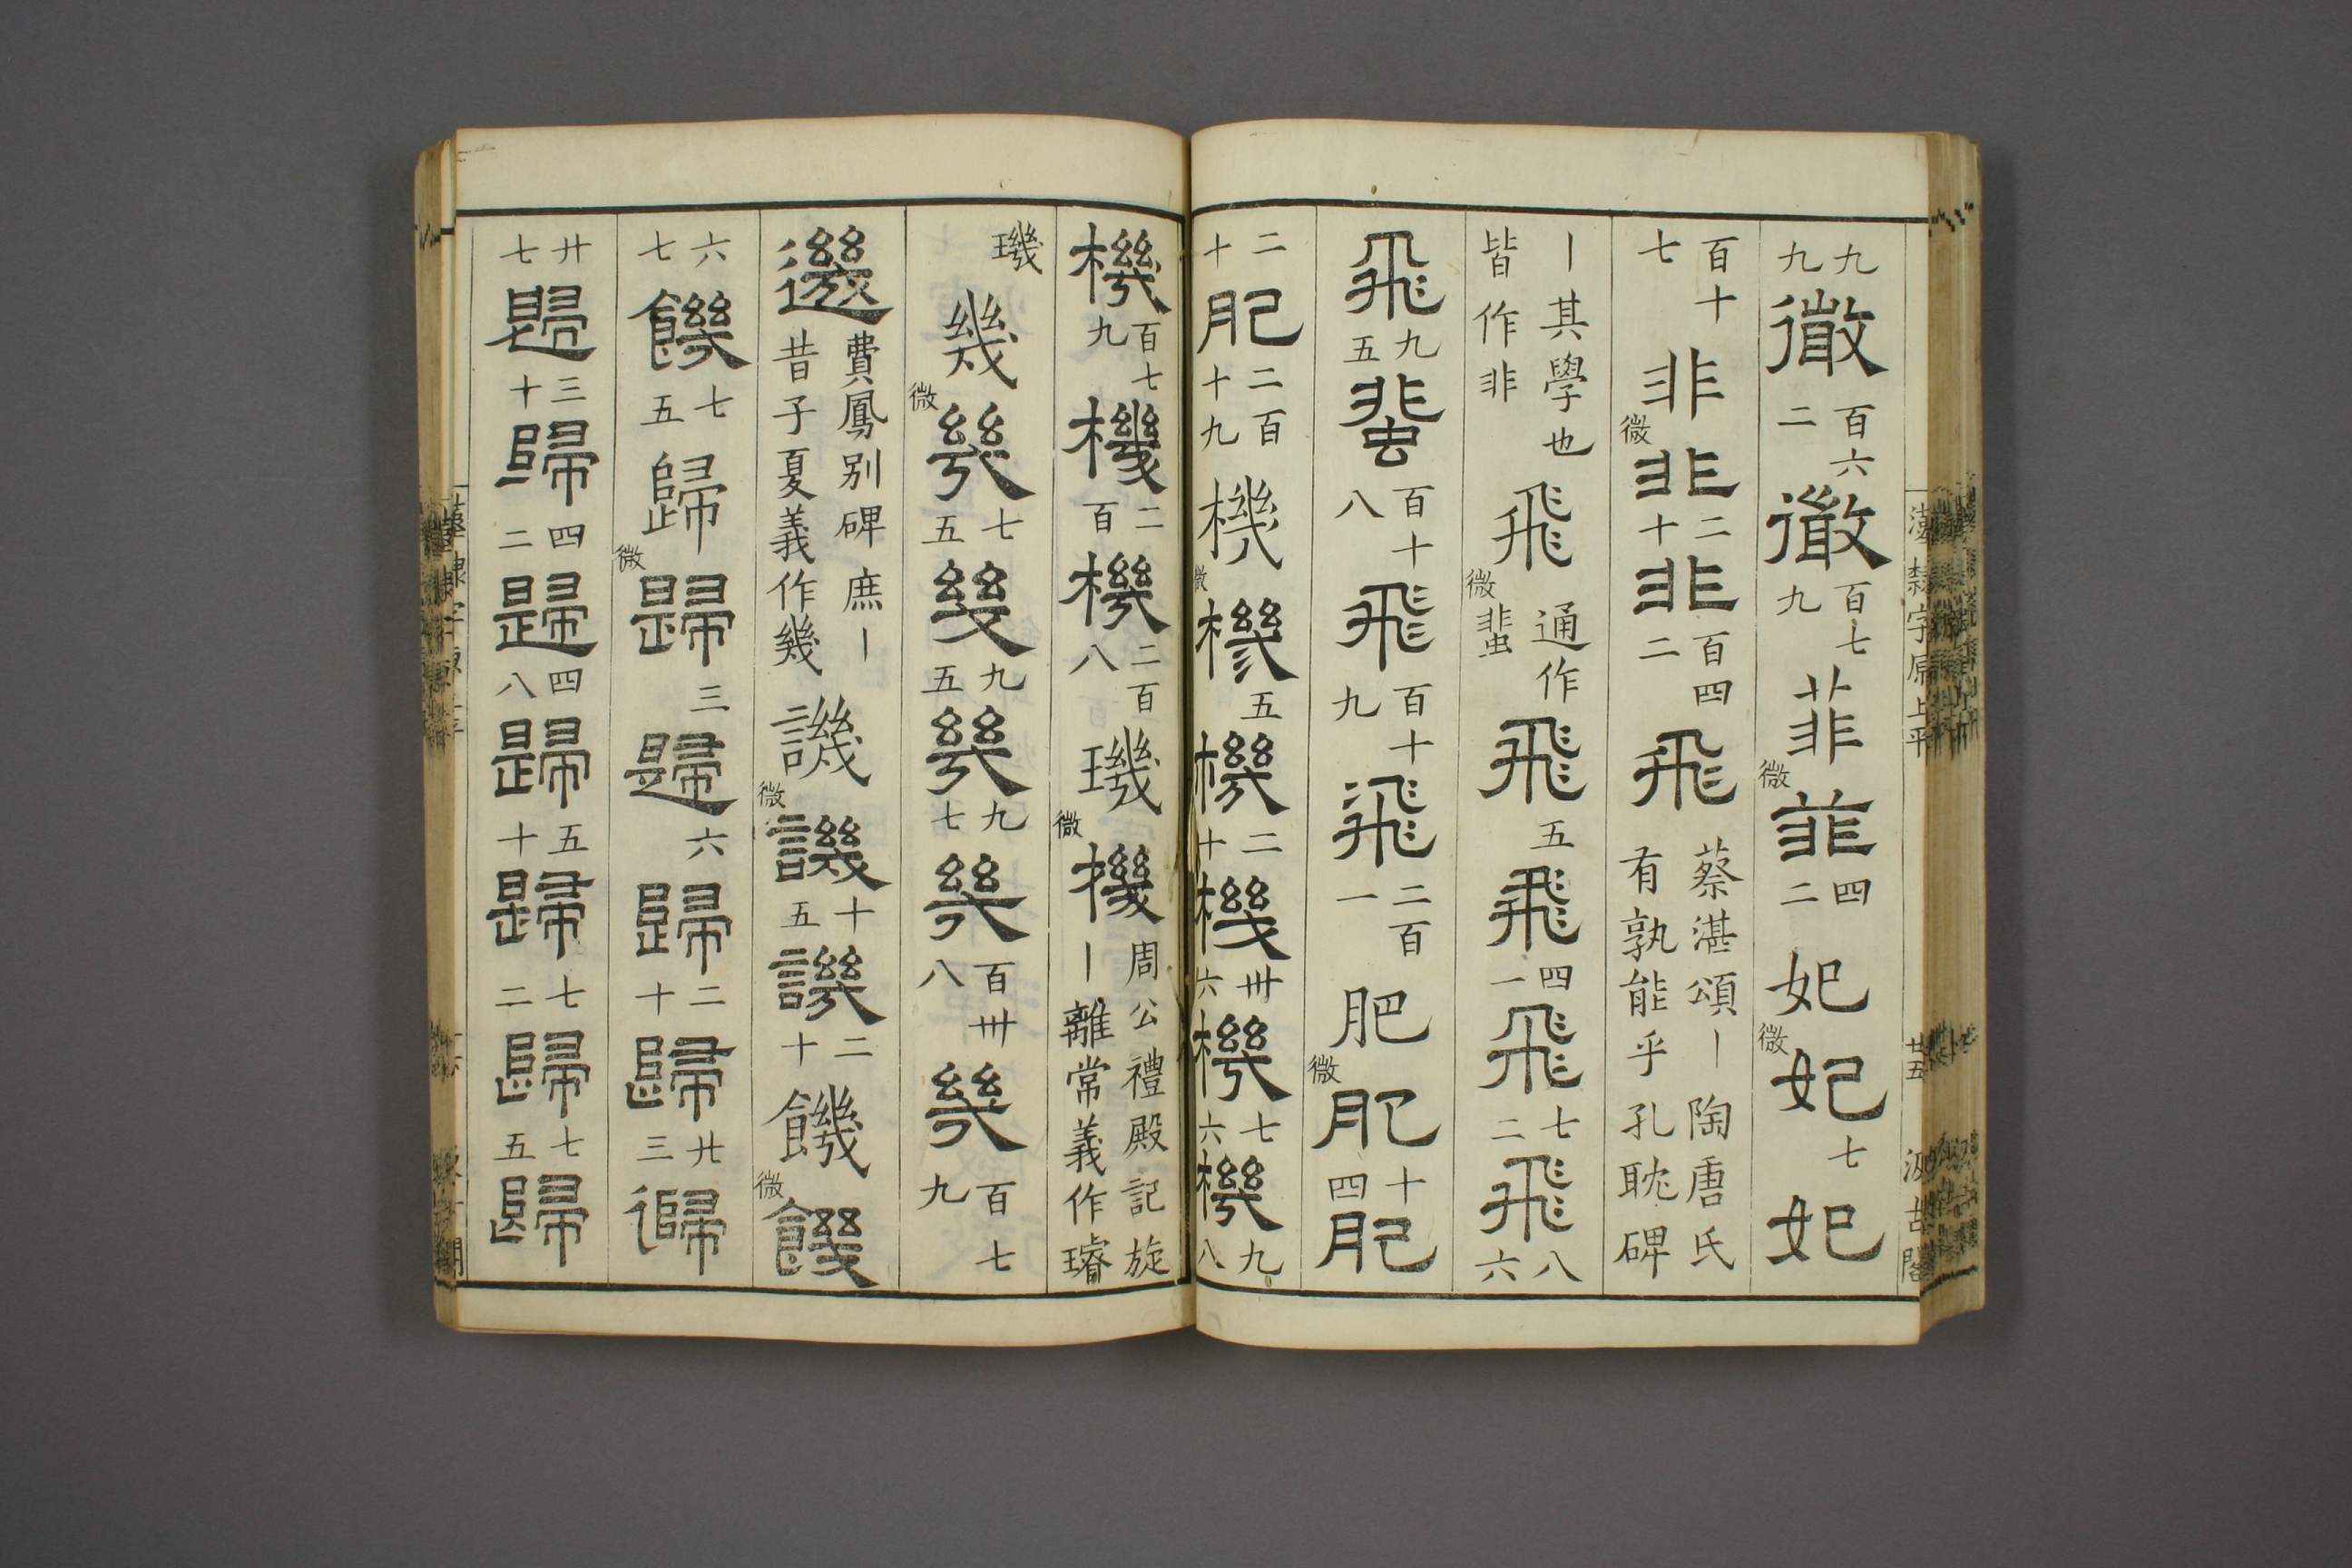 九九徵百六二徵百七九菲微菲四二妃微妃七妃
百十七非微非二十非百四二飛蔡湛頌丨陶唐氏有孰能乎孔耽碑
丨其學也皆作非飛微通作蜚飛五飛四一飛七二飛八六
飛九五蜚百十八飛百十九飛二百一肥微肥十四肥
二十肥二百十九機微機五機二十機卅六機七六機九八
漢隸字原上平 廿五 汲古閣
機百七九機二百機二百八璣微機周公禮殿記旋丨離常義作璿
璣幾微幾七五幾九五幾九七幾百卅八幾百七九
邀費鳳别碑庶丨昔子夏義作幾譏微譏十五譏二十饑微饑
六七饑七五歸微歸三歸六歸二十歸廾三歸
廾七歸三十歸四二歸四八歸五十歸七二歸七五歸